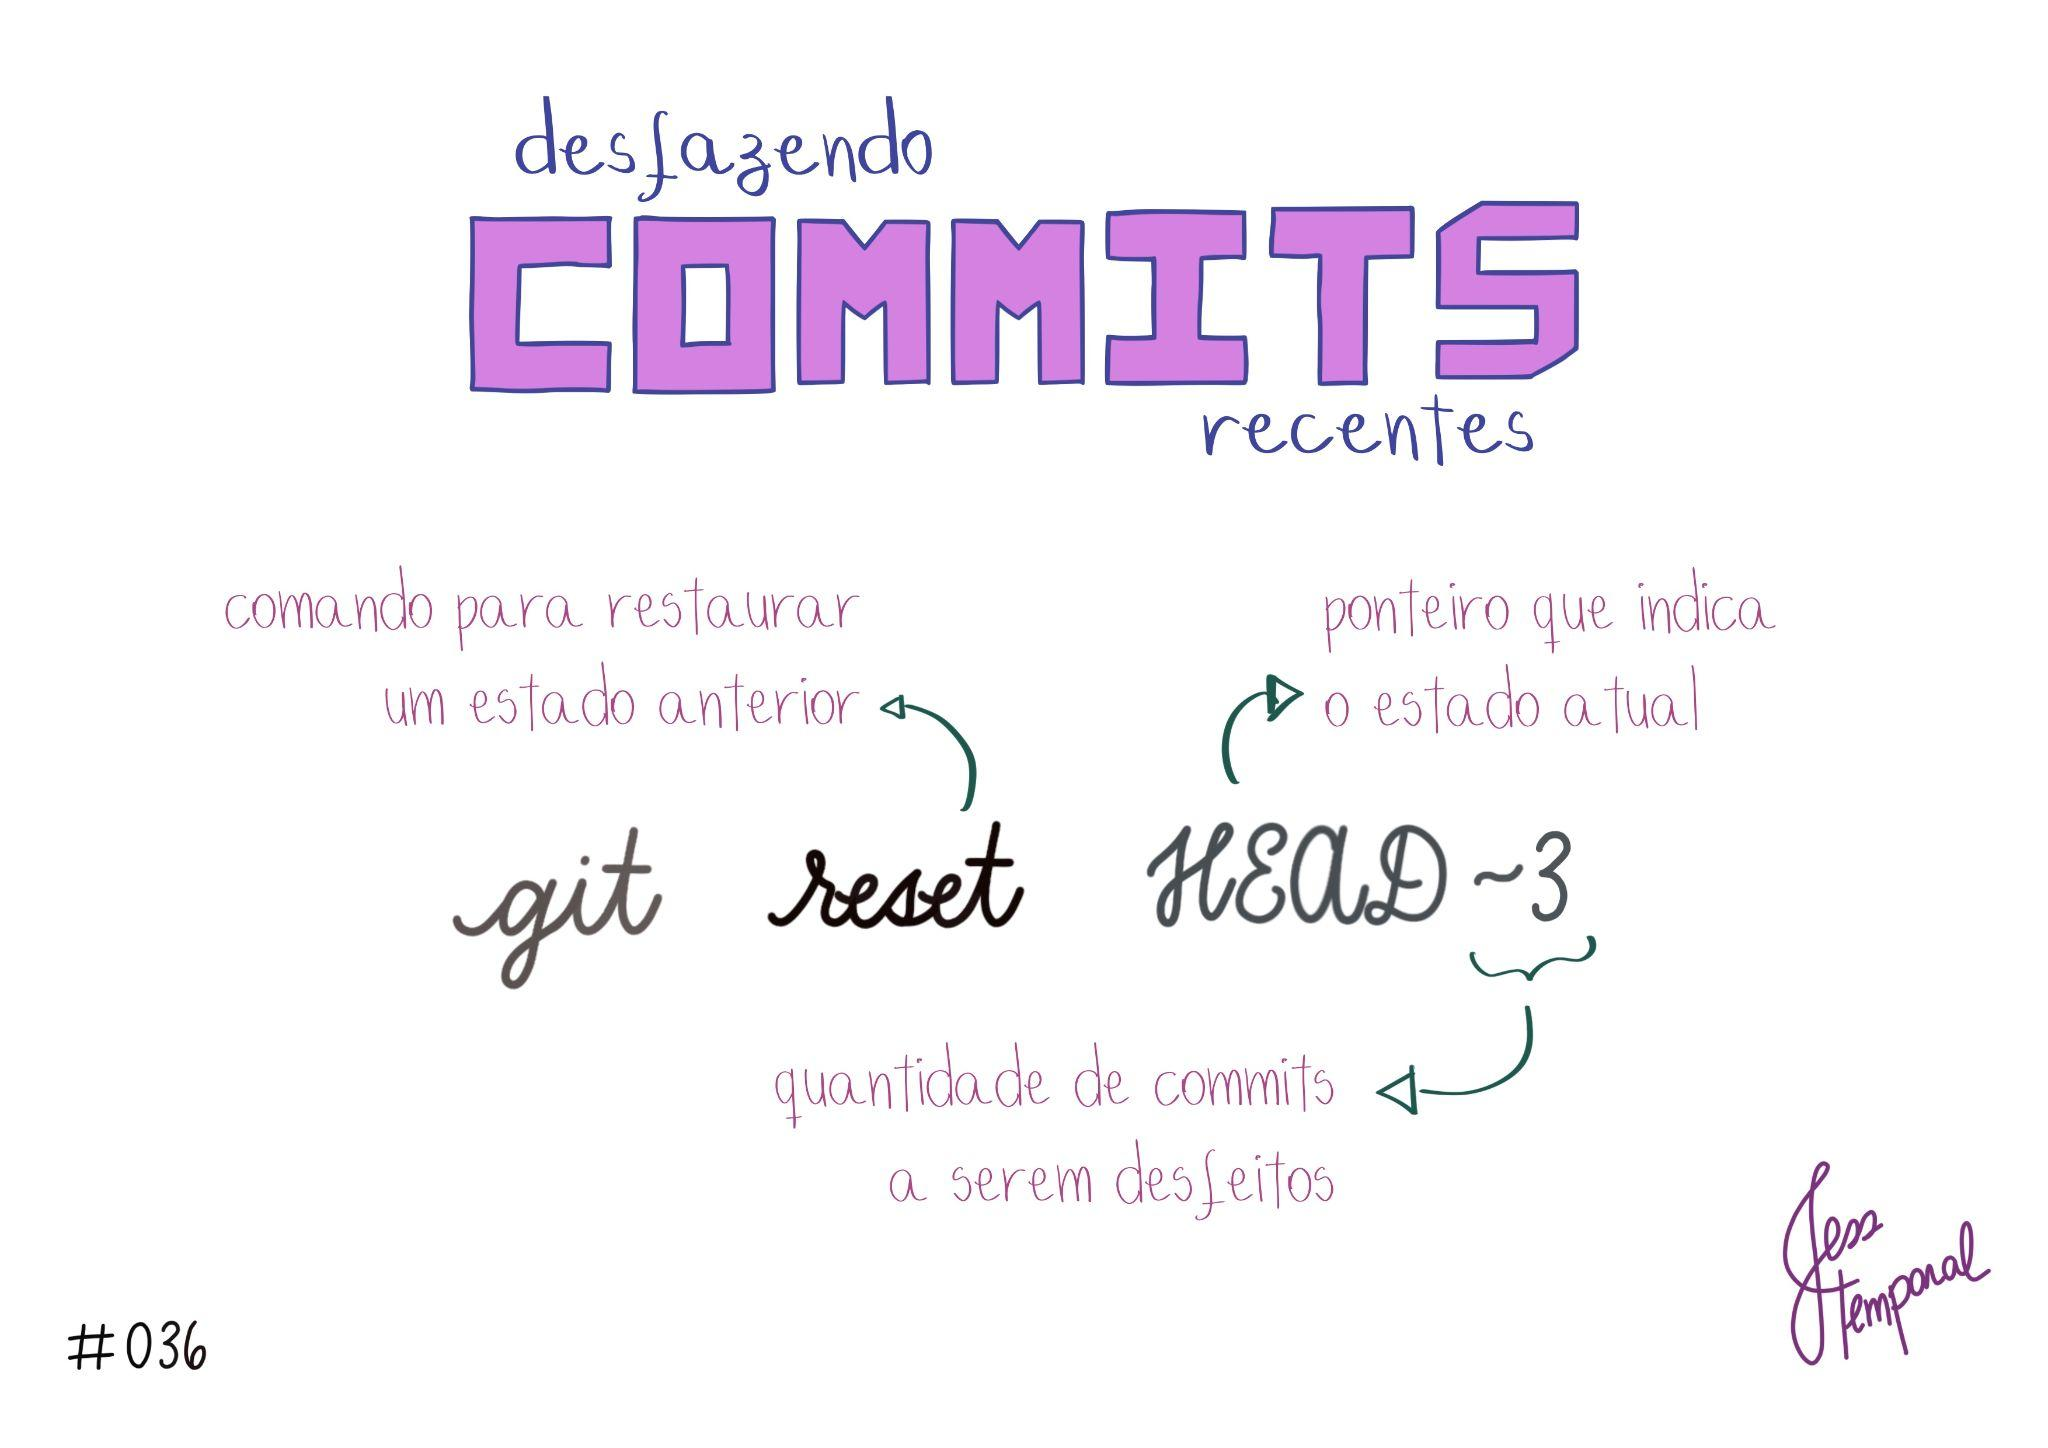 desfazendo
COMMITS
recentes
comando para restaurar
um estado anterior
ponteiro que indica
o estado atual
git reset HEAD~3
quantidade de commits
a serem desfeitos
Jess
temporal
#036